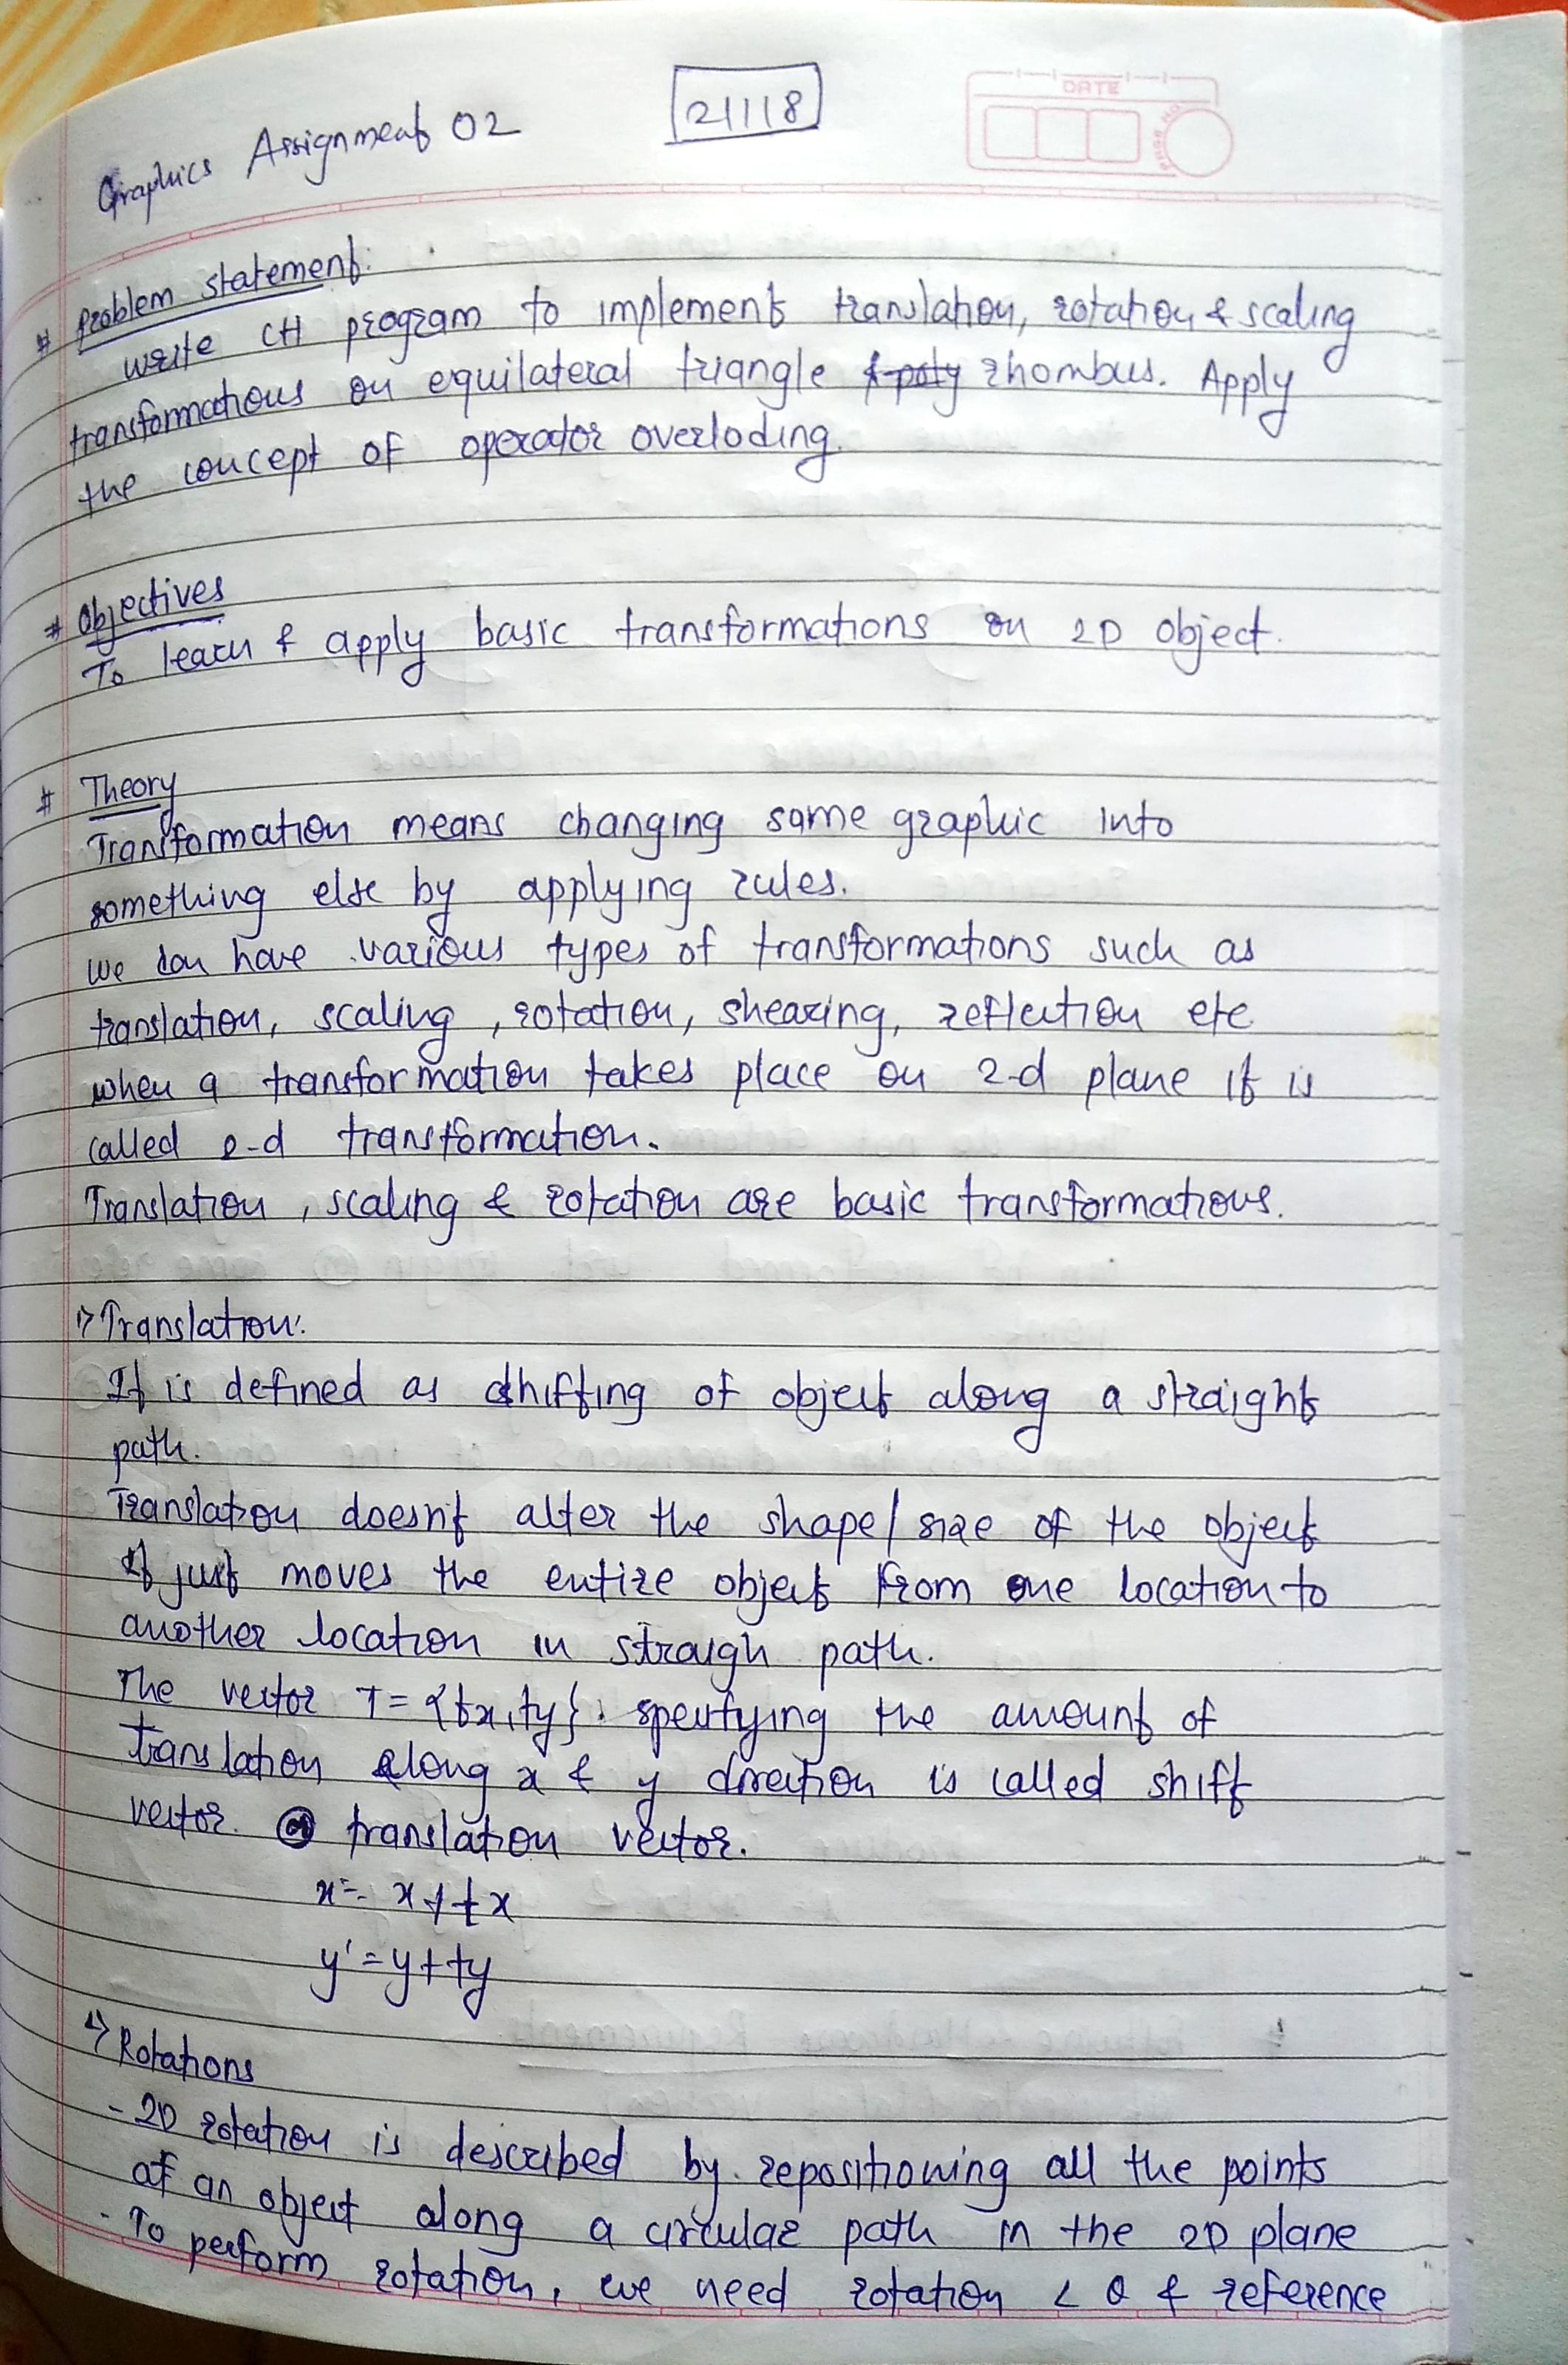 Graphics Assignment 02
21118
DATE
PAGE NO
# Problem statement:
write C++ program to implement translation, rotation & scaling
transformations on equilateral triangle & poly rhombus. Apply
the concept of operator overloding.
# Objectives
To learn & apply basic transformations on 2D object.
# Theory
Transformation means changing some graphic into
something else by applying rules.
we can have various types of transformations such as
translation, scaling, rotation, shearing, reflection etc
when a transformation takes place on 2-d plane it is
called 2-d transformation.
Translation, scaling & rotation are basic transformations.
1> Translation:
It is defined as shifting of object along a straight
path.
Translation doesn't alter the shape/size of the object
It just moves the entire object from one location to
another location in straigh path.
The vector T = {tx, ty} specifying the amount of
translation along x & y direction is called shift
vector or translation vector.
x' = x + tx
y' = y + ty
Rotations
- 2D rotation is described by repositioning all the points
of an object along a circular path in the 2D plane
- To perform rotation, we need rotation ∠ θ & reference